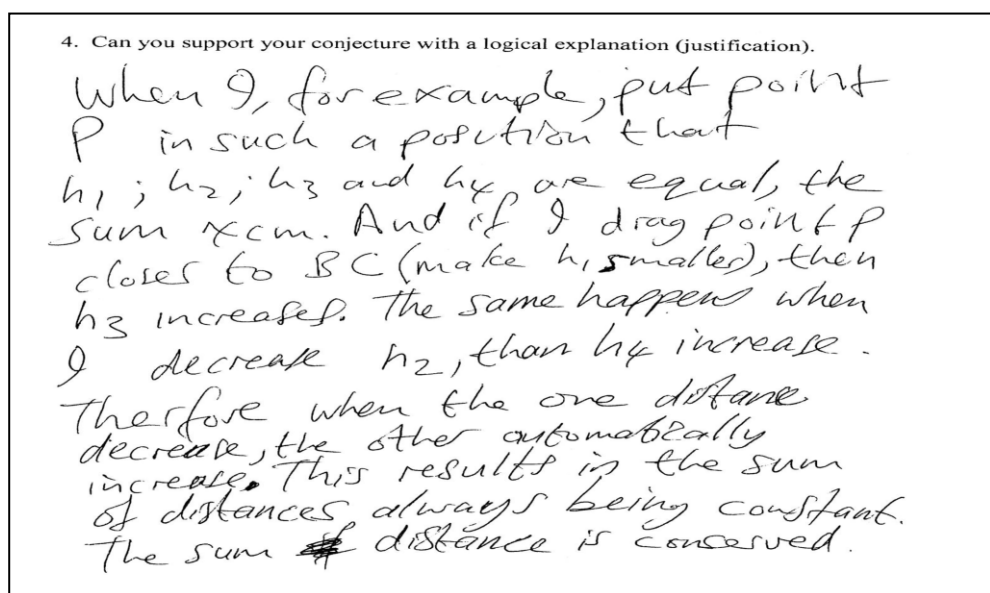 4. Can you support your conjecture with a logical explanation (justification).
When I, for example, put point
P in such a position that
h1 ; h2 ; h3 and h4, are equal, the
sum xcm. And if I drag point P
closer to BC (make h1 smaller), then
h3 increases. The same happens when
I decrease h2, than h4 increase.
Therfore when the one distane
decrease, the other automatically
increase. This results in the sum
of distances always being constant.
The sum distance is conserved.